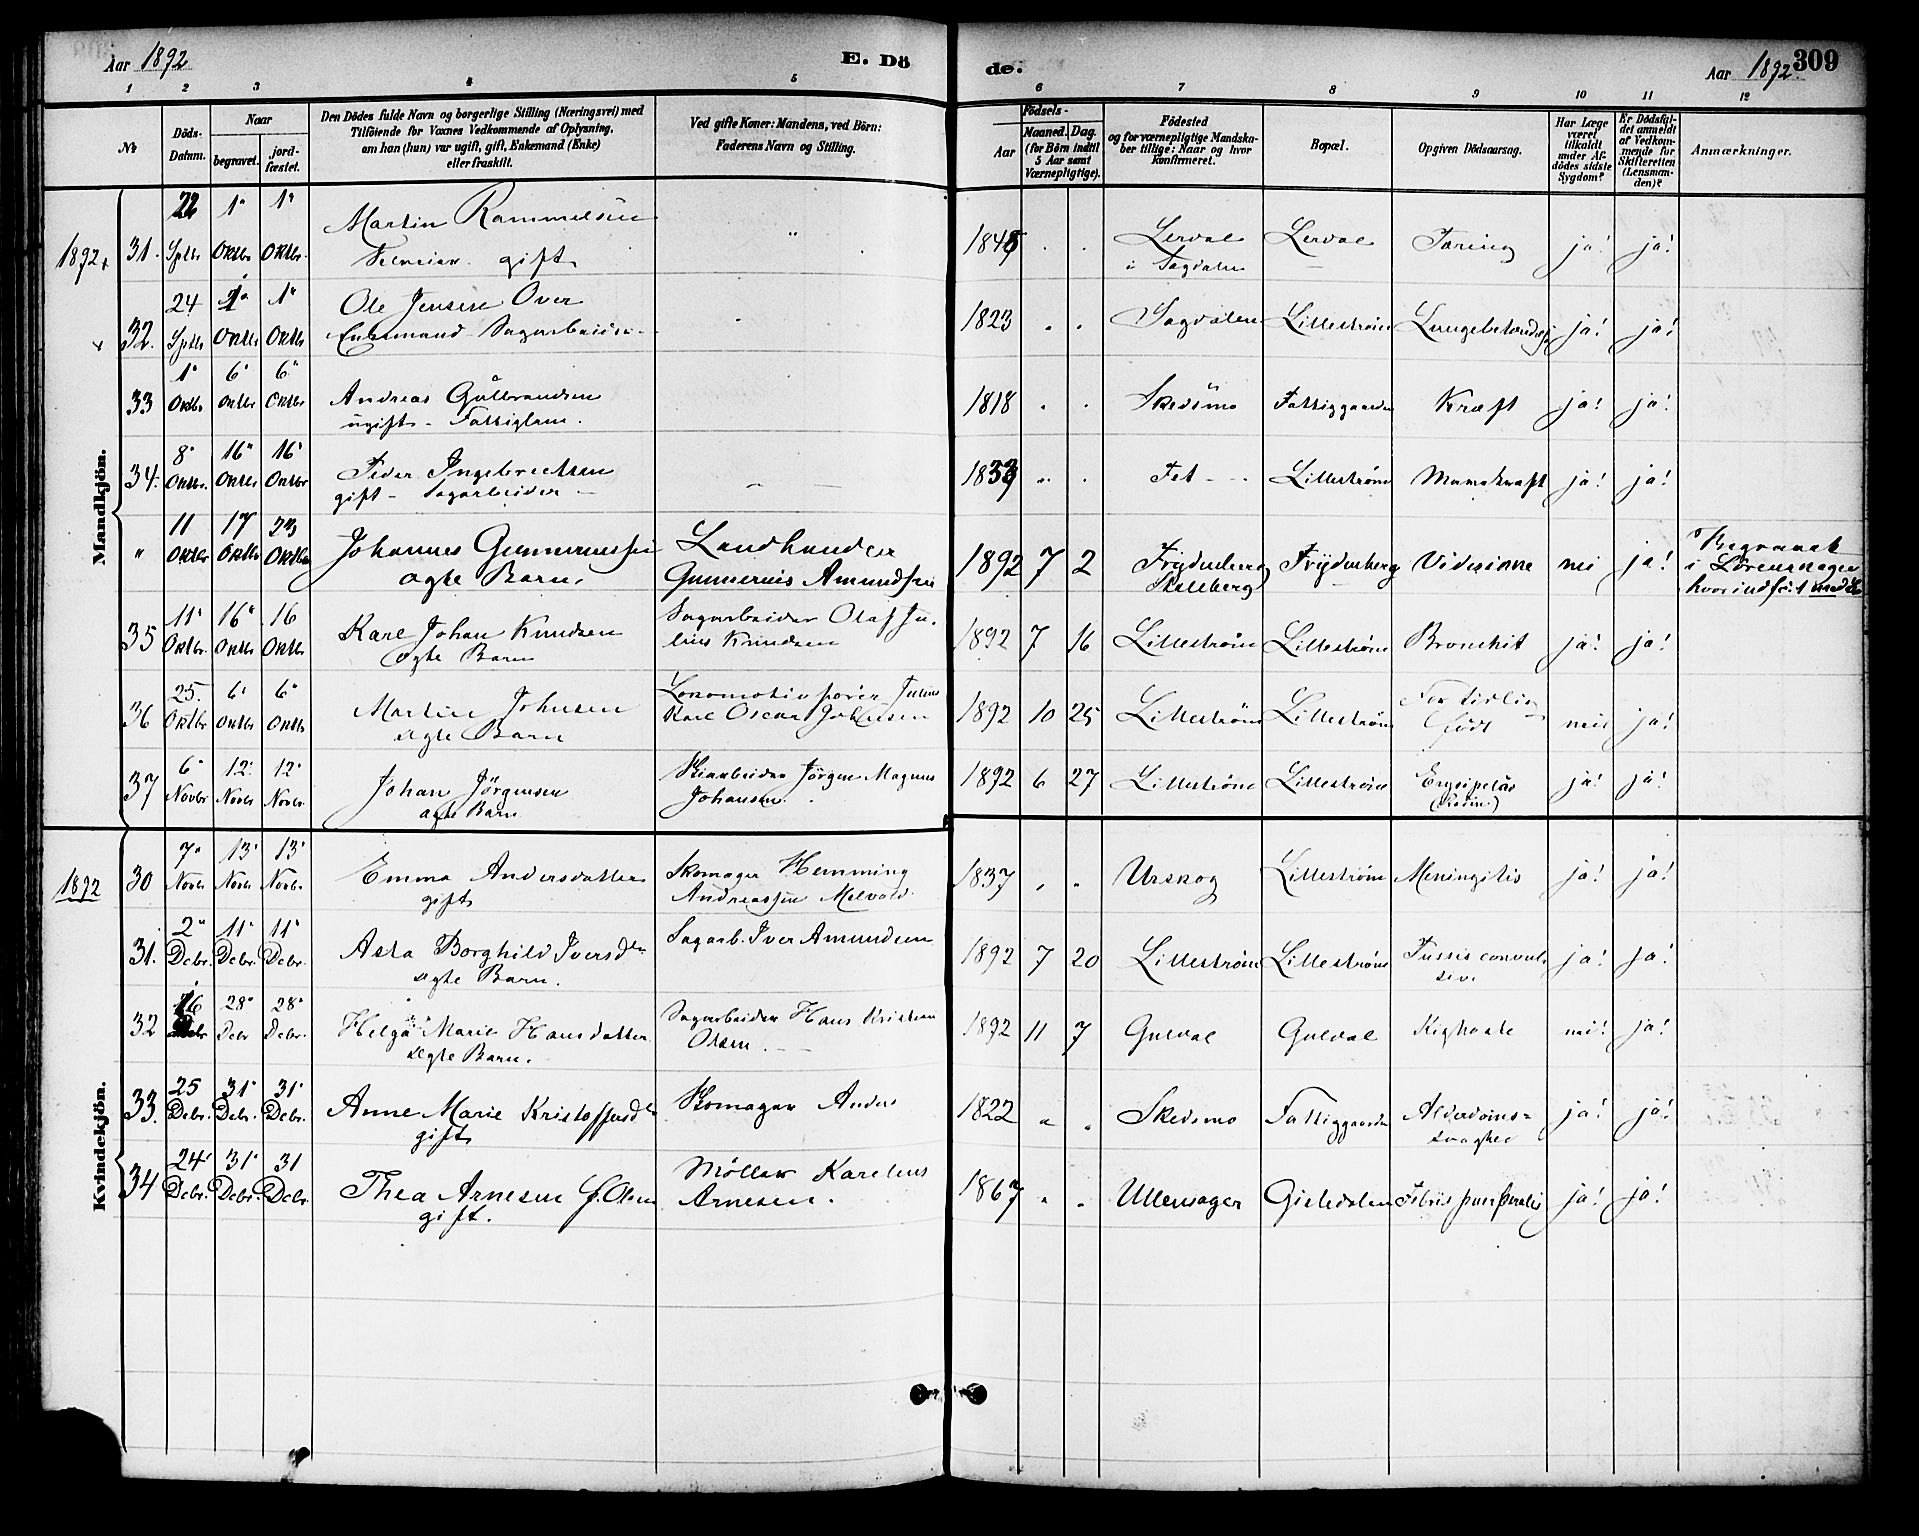 Aar 1892 E. Dö de. Aar 1892. 309
1 2 3 4 5 6 7 8 9 10 11 12
No
Döds-
Datum.
Naar
begravet.
jord-
fæstet.
Den Dödes fulde Navn og borgerlige Stilling (Næringsvei) med
Tilföiende for Voxnes Vedkommende af Oplysning,
om han (hun) var ugift, gift, Enkemand (Enke)
eller fraskilt.
Ved gifte Koner: Mandens, ved Börn:
Faderens Navn og Stilling.
Födsels-
Aar
Maaned. Dag.
(for Börn indtil
5 Aar samt
Værnepligtige).
Födested
og for værnepligtige Mandska-
ber tillige: Naar og hvor
Konfirmeret.
Bopæl.
Opgiven Dödsaarsag.
Har Læge
været
tilkaldt
under Af-
dödes sidste
Sygdom?
Er Dödsfal-
det anmeldt
af Vedkom-
mende for
Skifteretten
(Lensman-
den)?
Anmærkninger.
Mandkjön.
1892
31. 22 Sptbr 1" Oktbr 1" Oktbr. Martin Rammelsen " 1848 Lerdal Lerdal Tæring ja! ja!
gift i Sagdalen
32. 24 Sptbr 1" Oktbr 1" Oktbr Ole Jensen Over 1823 Sagdalen Lillestrøm ja! ja!
Enkemand - Sagarbeider
33 1" Oktbr 6" Oktbr 6" Oktbr Andreas Gulbrandsen 1818 Skedsmo Fattiggaarden Kræft ja! ja!
ugift - Fattiglem.
34. 8" Oktbr. 16" Oktbr 16" Oktbr Peder Ingebretsen 1833 Fet Lillestrøm Mavekræft ja! ja!
gift - Sagarbeider
" 11 Oktbr 17 Oktbr 23 Oktbr Johannes Gunneriussen Landhandler 1892 7 2 Frydenberg Frydenberg nei ja! Begravet
ægte Barn. Gunnerius Amundsen i Lörenskogen
hvor indført
35 11" Oktbr. 16" Oktbr 16 Oktbr Karl Johan Knudsen Sagarbeider Olaf Ju- 1892 7 16 Lillestrøm Lillestrøm Bronchit ja! ja!
ægte Barn lius Knudsen
36 25. Oktbr 6" Oktbr 6" Oktbr Martin Johnsen Lokomotivfører Julius 1892 10 25 Lillestrøm Lillestrøm For tidlig nei ja!
ægte Barn Karl Oscar Johnsen født
37 6" Novbr 12" Novbr 12" Novbr. Johan Jörgensen Jörgen Magnus 1892 6 27 Lillestrøm Lillestrøm Erysipelas ja! ja!
ægte Barn Johansen.
Kvindekjön.
1892
30 7" Novbr 13" Novbr 13" Novbr. Emma Andersdatter Skomager Hemming 1837 " " Urskog Lillestrøm Meningitis ja! ja!
gift Andreassen Melvold
31. 2" Debr. 11" Debr. 11" Debr. Asta Borghild Iversdtr Sagarb. Iver Amundsen 1892 7 20 Lillestrøm Lillestrøm Tussis convul- ja! ja!
ægte Barn. siva
32 16 Debr 28" Debr 28" Debr. Helga Marie Hansdatter Sagarbeider Hans Kristian 1892 11 7 Guldal Guldal Kighoste nei! ja!
ægte Barn. Olsen.
33. 25 Debr. 31" Debr. 31" Debr. Anne Marie Kristoffersdtr Skomager Anders 1822 " " Skedsmo Fattiggaarden Alderdoms= ja! ja!
gift svaghed
34 24" Debr. 31" Debr. 31 Debr. Thea Arnesen f. Olsen Møller Karelius 1867 " " Ullensager Febris puerperalis ja! ja!
gift. Arnesen.